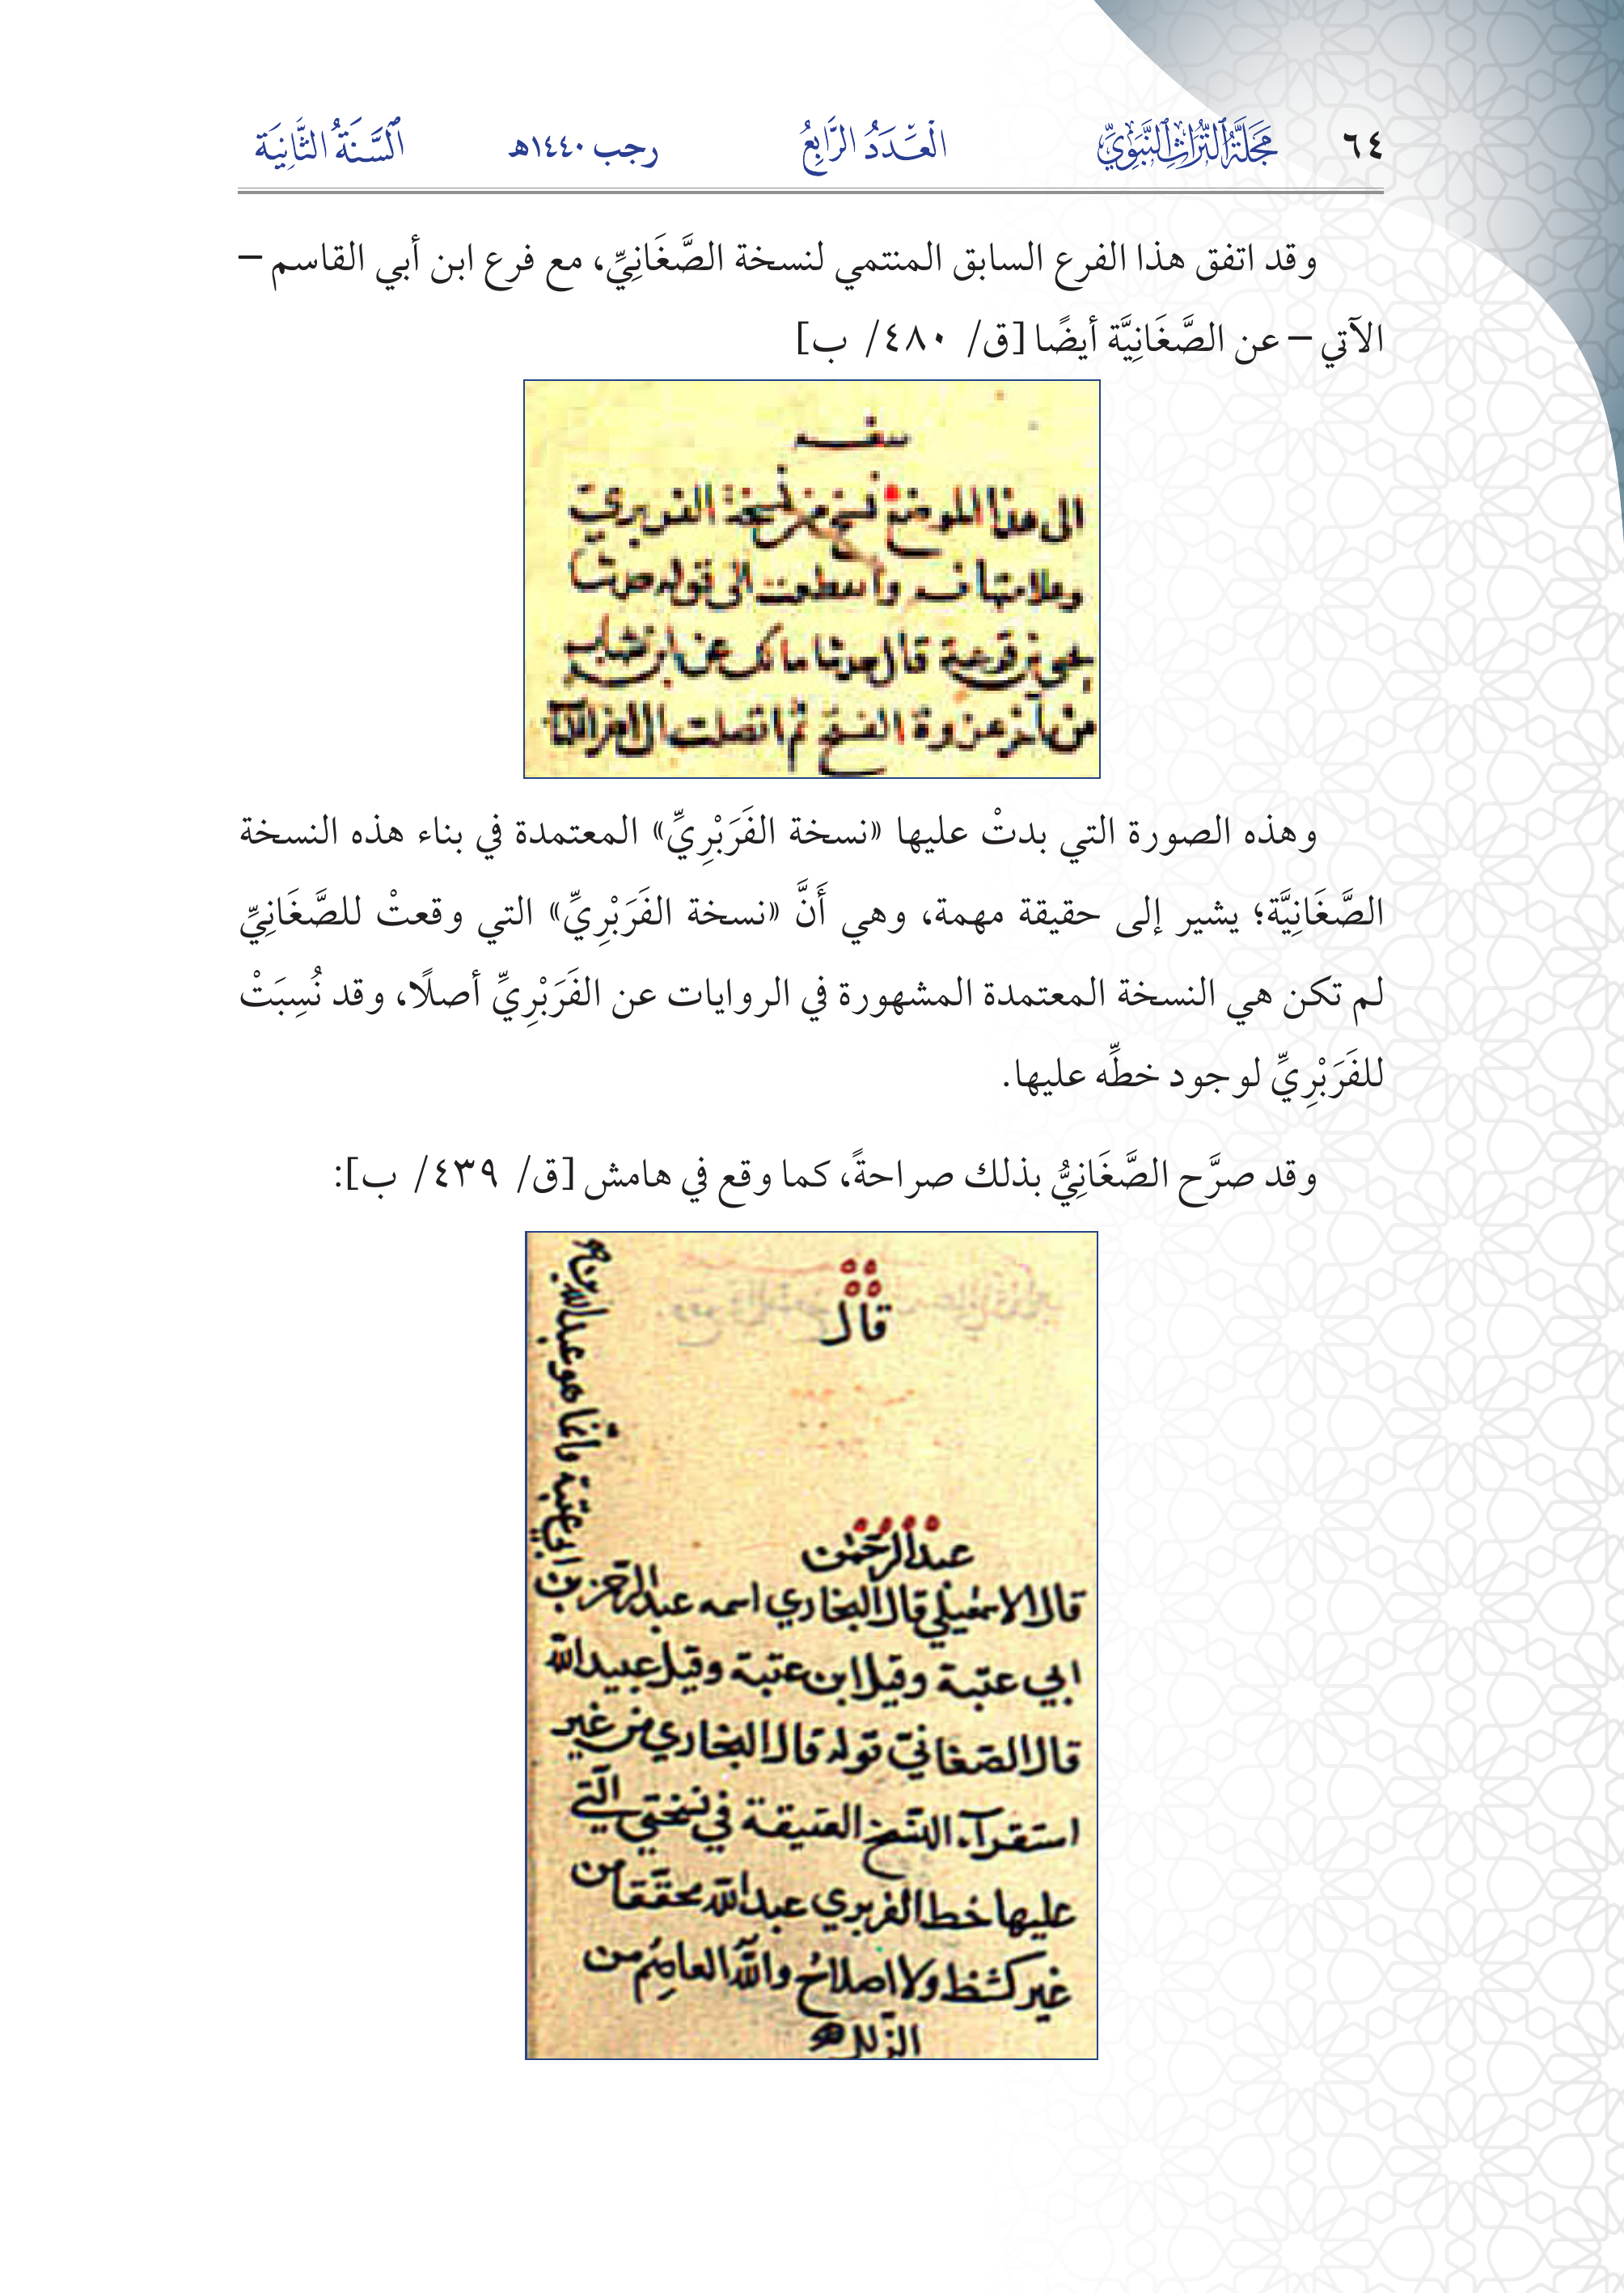 ٦٤ مَجَلَّةُ التُّرَاثِ النَّبَوِيِّ الْعَدَدُ الرَّابِعُ رجب ١٤٤٠هـ السَّنَةُ الثَّانِيَة
وقد اتفق هذا الفرع السابق المنتمي لنسخة الصَّغَانِيِّ، مع فرع ابن أبي القاسم –
الآتي – عن الصَّغَانِيَّة أيضًا [ق/ ٤٨٠/ ب]
الى هذا الموضع نسخ من نسخة الفربري
وعلامتها ف وانقطعت الى قوله حدثنا
يحيى بن قزعة قال حدثنا مالك عن ابن شهاب
من آخر غزوة الفتح ثم اتصلت الى
وهذه الصورة التي بدتْ عليها «نسخة الفَرَبْرِيِّ» المعتمدة في بناء هذه النسخة
الصَّغَانِيَّة؛ يشير إلى حقيقة مهمة، وهي أَنَّ «نسخة الفَرَبْرِيِّ» التي وقعتْ للصَّغَانِيِّ
لم تكن هي النسخة المعتمدة المشهورة في الروايات عن الفَرَبْرِيِّ أصلًا، وقد نُسِبَتْ
للفَرَبْرِيِّ لوجود خطِّه عليها.
وقد صرَّح الصَّغَانِيُّ بذلك صراحةً، كما وقع في هامش [ق/ ٤٣٩/ ب]:
قال
عبد الرحمن
قال الاسمعيلي قال البخاري اسمه عبد الرحمن بن
ابي عتبة وقيل ابن عتبة وقيل عبيد الله
قال الصغاني قوله قال البخاري من غير
استقراء النسخ العتيقة في نسختي التي
عليها خط الفربري عبد الله محققا من
غير كشط ولا اصلاح والله العاصم من
الزلل
ابي عتبة وانما هو عبد الله بن